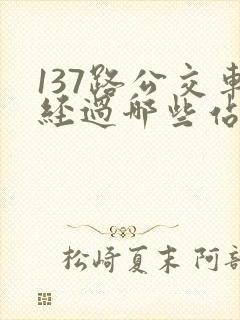 137路公交車
經過哪些佔
松崎夏未 阿部